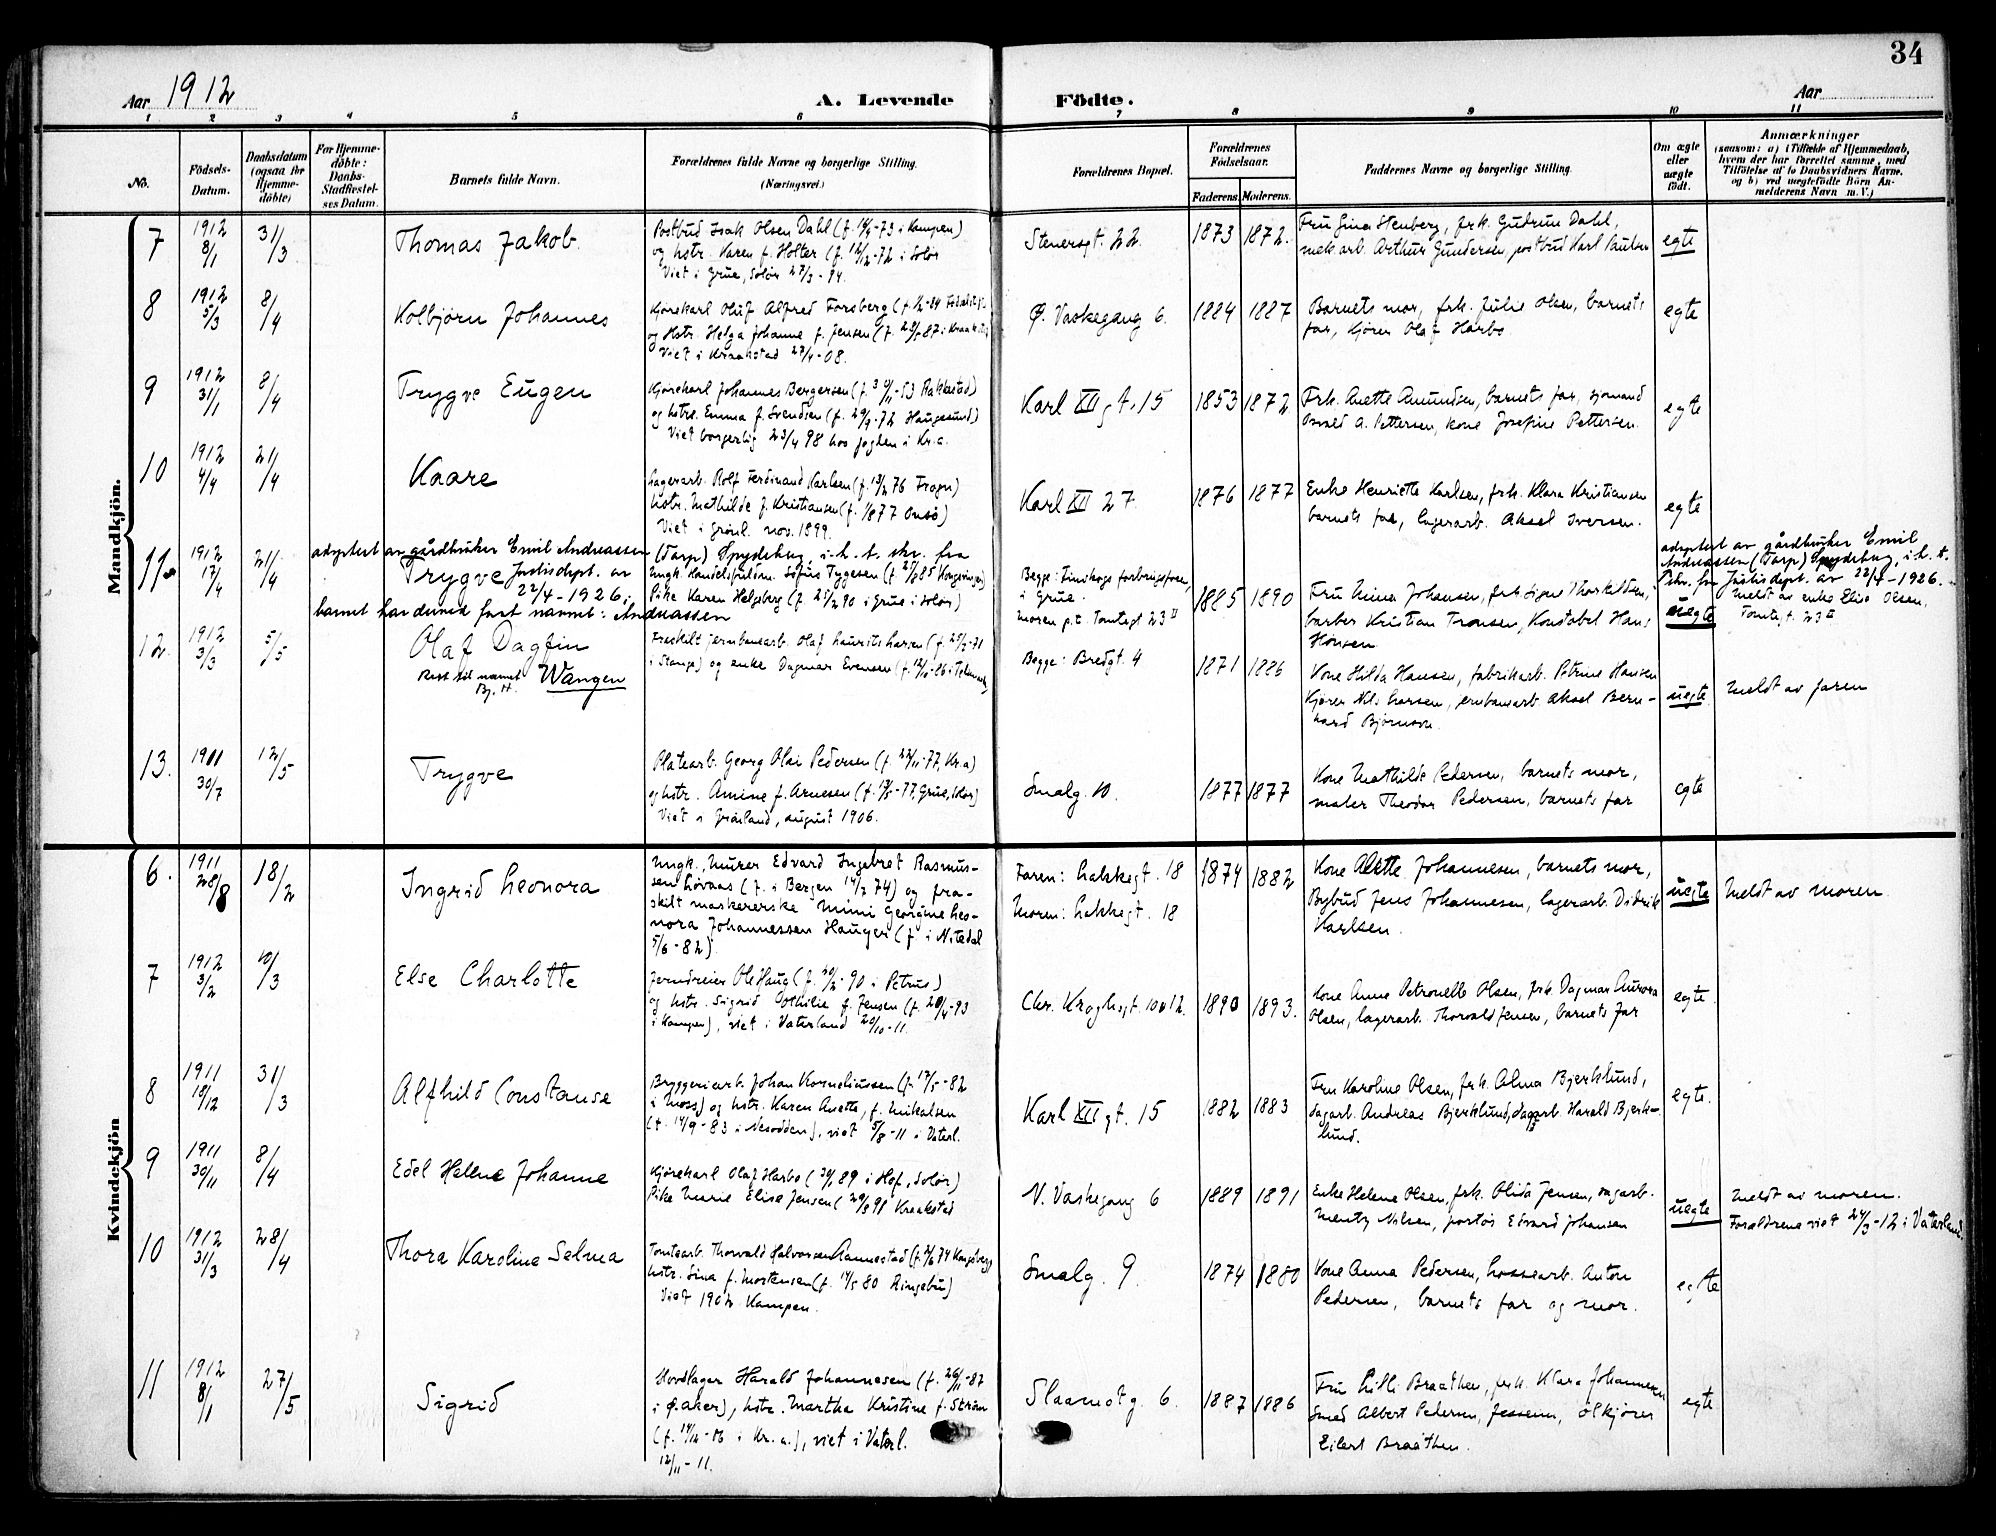 34
Aar 1912
A. Levende Födte.
Aar
1 2 3 4 5 6 7 8 9 10 11
No.
Födsels-Datum.
Daabsdatum (ogsaa for Hjemmedöbte)
For Hjemmedöbte: Daabs-Stadfæstelses Datum.
Barnets fulde Navn.
Forældrenes fulde Navne og borgerlige Stilling. (Næringsvei.)
Forældrenes Bopæl.
Forældrenes Födselsaar.
Faderens. Moderens.
Faddernes Navne og borgerlige Stilling.
Om ægte eller uægte födt.
Anmærkninger
(saasom: a) i Tilfælde af Hjemmedaab, hvem der har forrettet samme, med Tilföielse af to Daabsvidners Navne. og b) ved uægtefödte Börn Anmelderens Navn m. V.)
Mandkjön.
7 1912 8/1 31/3 Thomas Jakob.
Postbud Isak Olsen Dahl (f. -73 i Kampen)
og hstr. Karen f. Holter (f. 12-72 i Solør
Viet i Grue, Solør 27/3-94.
Stenersgt. 22. 1873 1872.
Fru Gina Stenberg, frk. Gudrun Dahl,
mek arb. Arthur Gundersen, postbud Karl
egte
8 1912 5/3 8/4 Kolbjørn Johannes
Kjørekarl Oluf Alfred Forsberg
og hstr. Helga Johanne f. Jensen
Viet i Kraakstad 27/4-08.
Ø. Vaskegang 6. 1884 1887
Barnets mor, frk. Julie Olsen, barnets
far, kjører Olaf Harbo
egte
9 1912 31/1 8/4 Trygve Eugen
Kjørekarl Johannes Bergersen (f. 30/11-53 Rakkestad)
og hstr. Emma f. Svendsen (f. 29/9-72 Haugesund)
Viet borgerlig 23/4 98 hos fogden i Kr.a.
Karl XII gt. 15 1853 1872
Frk. Anette Amundsen, barnets far, sjømand
Osvald A. Pettersen, kone Josefine Pettersen.
egte
10 1912 4/4 21/4 Kaare
Lagerarb. Rolf Ferdinand Karlsen (f. 13/2 76 Frogn)
hstr. Mathilde f. Kristiansen (f. 1877 Onsø)
Viet i Grønl. nov. 1899.
Karl XII 27 1876 1877
Enke Henriette Karlsen, frk. Klara Kristiansen
barnets far, lagerarb. Aksel Iversen.
egte
adoptert av gårdbruker Emil Andreassen (Tarp) Spydeberg, i.h.t. skr. fra
Justisdept. av
22/4-1926,
barnet har derved fått navnet: Andreassen
11 1912 17/4 21/4 Trygve
Ungk. Handelsfuldm. Sofus Tygesen (f. 85 Kongsvinger)
Pike Karen Helgeberg (f. 90 i Grue i Solør)
i Grue.
moren p.t. Tomtegt 23 II
1885 1890
Fru Mina Johansen, frk Signe Thorkildsen,
barber Kristian Tronsen, Konstabel Hans
Hansen
uegte
adoptert av gårdbruker Emil
Andreassen (Tarp) Spydeberg, i.h.t.
skr. fra Justisdept. av 22/4-1926.
Meldt av enke Elise Olsen,
Tomtegt. 23 II
12. 1912 3/3 5/5 Olaf Dagfin
Ret til navnet Wangen
Fraskilt jernbanearb. Olaf Laurits Larsen (f. -71
i Stange) og enke Dagmar Evensen
Begge: Bredgt. 4 1871 1886
Kone Hilda Hansen, fabrikarb. Petrine Hansen
Kjører Nils Larsen, jernbanearb. Aksel Bern-
hard Bjørnson.
uegte
Meldt av faren
13. 1911 30/7 12/5 Trygve
Platearb. Georg Olai Pedersen (f. 22/11-77, Kr.a)
og hstr. Amine f. Arnesen (f. -77, Grue, Solør)
Viet i Grønland, august 1906.
Smalg. 10. 1877 1877
Kone Mathilde Pedersen, barnets mor,
maler Theodor Pedersen, barnets far
egte
Kvindekjön
6. 1911 28/8 18/2 Ingrid Leonora
Ungk. Murer Edvard Ingebret Rasmus-
sen Løvaas (f. i Bergen 14/2 74) og fra-
skilt maskererske Mimi Georgine Leo-
nora Johannessen Hauger (f. i Nitedal
5/6-82)
Faren: Lakkegt. 18
Moren: Lakkegt. 18
1874 1882
Kone Alette Johannesen, barnets mor,
Bybud Jens Johannesen, lagerarb. Didrik
Karlsen.
uegte
Meldt av moren.
7 1912 3/2 10/3 Else Charlotte
Jerndreier Ole Haug (f. -90 i Petrus)
og hstr. Sigrid Othilie f. Jensen (f. 20/4-93
i Kampen), viet i Vaterland 20/10-11.
Chr. Kroghsgt. 1890 1893.
Kone Anne Petronelle Olsen, frk. Dagmar Aurora
Olsen, lagerarb. Thorvald Jensen, barnets far
egte
8 1911 18/12 31/3 Alfhild Constanse
Bryggeriarb. Johan Korneliussen (f. 17/5-82
i Moss) og hstr. Karen Anette, f. Mikalsen
(f. 14/9-83 i Nesodden), viet 5/8-11 i Vaterl.
Karl XII gt. 15 1882 1883
Fru Karoline Olsen, frk. Alma Bjerklund,
dagarb. Andreas Bjerklund, dagarb. Harald Bjerk-
lund.
egte.
9 1911 30/11 8/4 Edel Helene Johanne
Kjørekarl Olaf Harbo ( 89 i Hof, Solør)
Pike Marie Elise Jensen ( 91 Kraakstad
N. Vaskegang 6 1889 1891
Enke Helene Olsen, frk. Olida Jensen, dagarb.
Mentz Nilsen, portør Edvard Johansen
uegte
Meldt av moren.
Forældrene viet 24/3-12 i Vaterland.
10 1912 31/3 28/4 Thora Karoline Selma
Tomtearb. Thorvald Halvorsen Rannestad (f. 74 Kongsberg)
hstr. Lina f. Mortensen (f. 14/5 80 Ringebu)
Viet 1902 Kampen.
Smalg. 9. 1874 1880
Kone Anna Pedersen, lossearb. Anton
Pedersen, barnets far og mor.
egte
11 1912 8/1 27/5 Sigrid
Hovslager Harald Johannesen (f. 26/11-87
i Ø.aker), hstr. Martha Kristine f. Strøm
(f. 14/12-86 i Kr.a.), viet i Vaterl.
12/11-11.
Slaamotg. 6. 1887 1886
Fru Lilli Braathen, frk. Klara Johannesen
Smed Albert Pedersen, Jessenm, ølkjører
Eilert Braathen.
egte